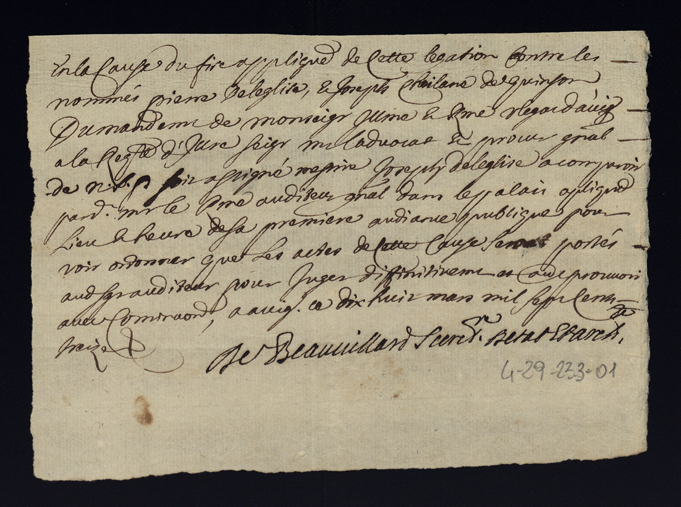 En la Cause du fisc appliqué de Cette legation Contre les
nommés pierre Deleglise, & Joseph Chailane de quinson
Du mandem.t de monseig.r Ill.me & R.me Viçegerd d'avig.
a la Req.te d'Illre seig.r m.r l'advocat & procur. g.nal
de N. S. P. soit assigné messire Joseph Deleglise a comparoir
pard. m.r le R.me auditeur g.nal dans le palais apliqué
Lieu & heure de sa premiere audiance publique pour
voir ordonner que Les actes de Cette Cause Seront portés
aud. s.r auditeur pour Juger diffinitivem.t et aude prouvoir
avec Comina.on, a avig. ce dix huit mars mil sept Cents
treize
De Beauvillard Secret.r Detat & arch.
4-29-233-01